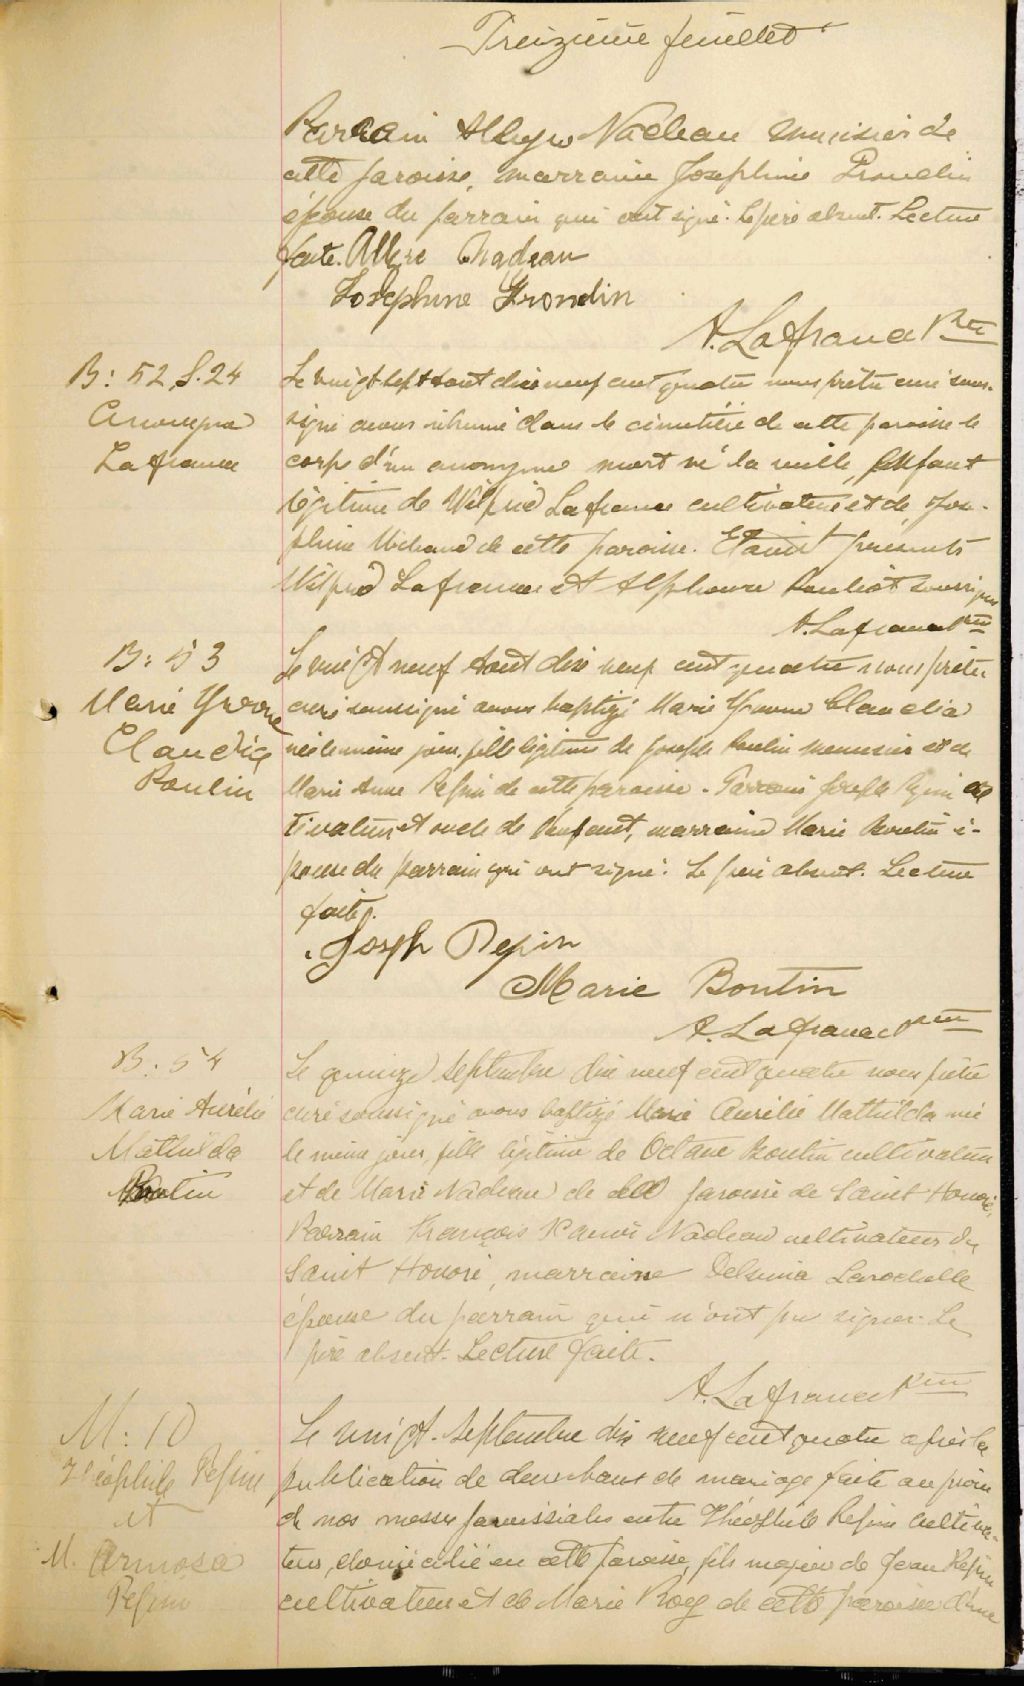 Treizième feuillet
Parrain Nadeau menuisier de
cette paroisse, marraine Josephine Grondin
épouse du parrain qui ont signé. Le père absent. Lecture
faite. Nadeau
Josephine Grondin
A. Lafrance Ptre
B: 52, S. 24
Anonyme
Lafrance
Le vingt sept Aout dix neuf cent quatre nous prêtre curé sous-
signé avons inhumé dans le cimetière de cette paroisse le
corps d'un anonyme mort né la veille, enfant
légitime de Wilfrid Lafrance cultivateur et de Jose-
phine Michaud de cette paroisse. Etaient présents
Wilfrid Lafrance et Alphonse Pouliot soussignés
A. Lafrance Ptre
B: 53
Marie Yvonne
Claudia
Poulin
Le vingt neuf Aout dix neuf cent quatre nous prêtre
curé soussigné avons baptizé Marie Yvonne Claudia
née le même jour, fille légitime de Joseph Poulin menuisier et de
Marie Anne Pepin de cette paroisse. Parrain Joseph Pepin cul
tivateur et oncle de l'enfant, marraine Marie Boutin é-
pouse du parrain qui ont signé. Le père absent. Lecture
faite.
Joseph Pepin
Marie Boutin
A. Lafrance Ptre
B: 54
Marie Aurélie
Mathilda
Boutin
Le quinze Septembre dix neuf cent quatre nous prêtre
curé soussigné avons baptizé Marie Aurélie Mathilda née
le même jour, fille légitime de Octave Boutin cultivateur
et de Marie Nadeau de la paroisse de Saint Honoré,
Parrain François Nadeau cultivateur de
Saint Honoré, marraine Delvina Larochelle
épouse du parrain qui n'ont pu signer. Le
père absent. Lecture faite.
A. Lafrance Ptre
M: 10
Théophile Pepin
et
M. Armosa
Pepin
Le vingt Septembre dix neuf cent quatre après la
publication de deux bans de mariage faite au prône
de nos messes paroissiales entre Théophile Pepin cultiva-
teur, domicilié en cette paroisse, fils majeur de Jean Pepin
cultivateur et de Marie Roy de cette paroisse d'une